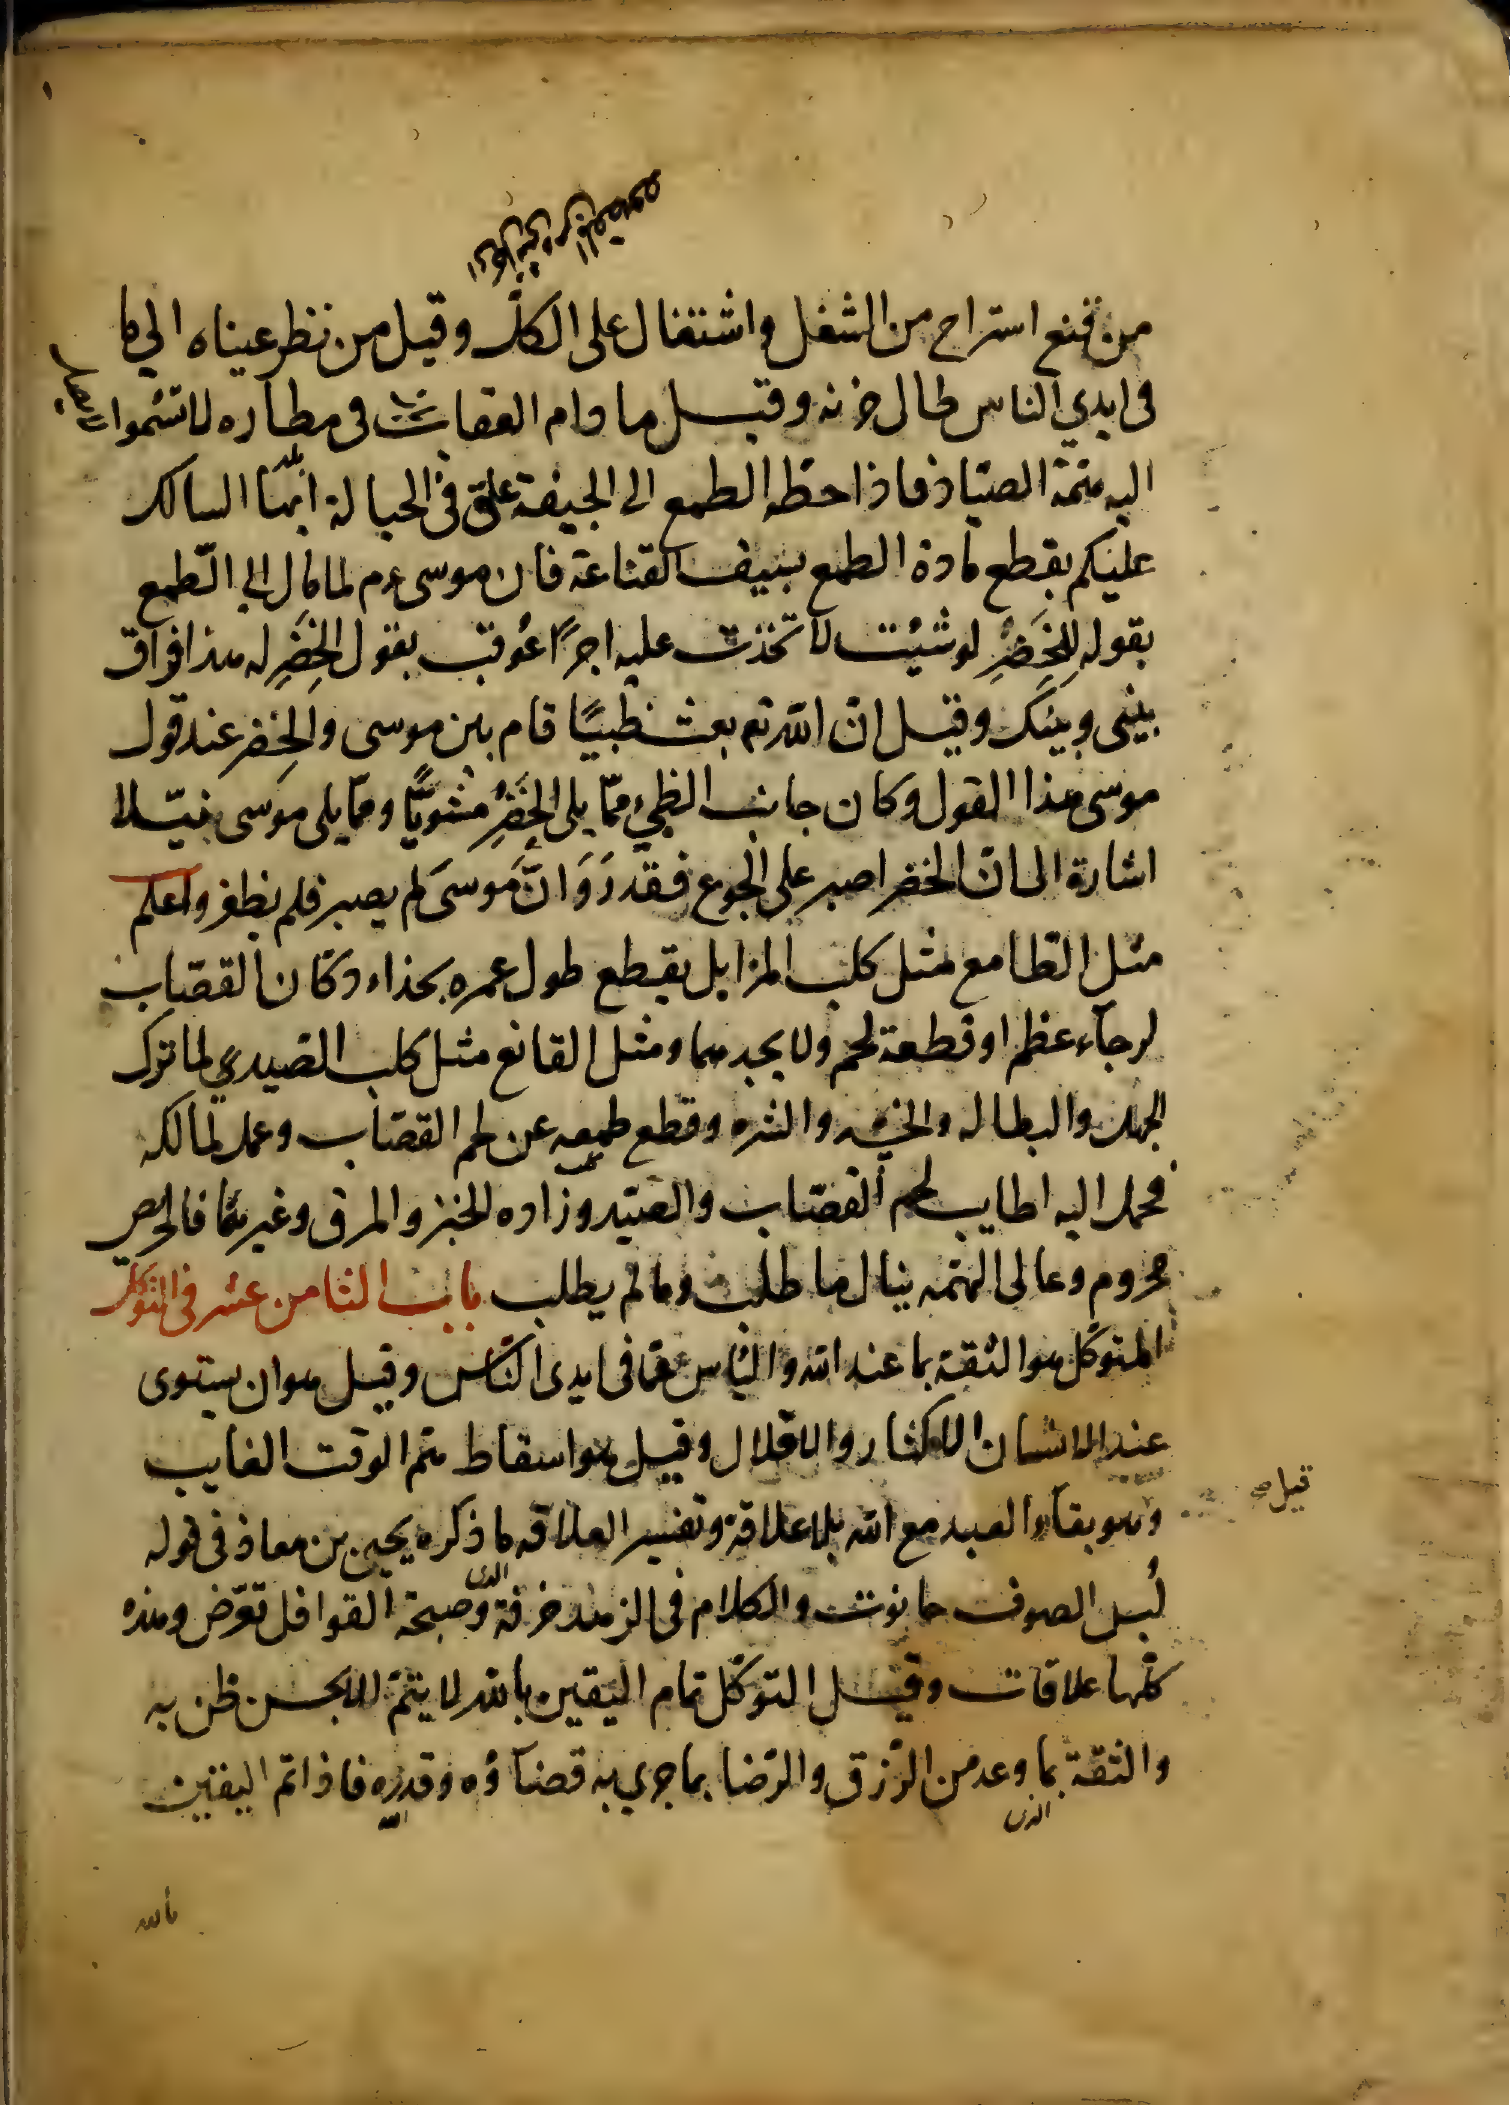 من قنع استراح من الشغل واشتغال على الكل وقيل من نظر عيناه الى ما
فى ايدي الناس طال حزنه وقيل ما دام العقاب فى مطاره لا تسموا
اليه همّة الصيّاد فاذا حطّه الطمع الى الجيفة علق فى الحبالة ايها السالك
عليكم بقطع مادة الطمع بسيف القناعة فان موسى عم لما مال الى الطّمع
بقوله للخَضِرِ لو شئت لاتخذت عليه اجرًا عُوقب بقول الخَضِرِ له هذا فراق
بينى وبينك وقيل ان الله تع بعث ظبيًا قام بين موسى والخضر عند قول
موسى هذا القول وكان جانب الظبي ممّا يلى الخَضِرَ مشويًّا ومما يلى موسى نيّـلا
اشارة الى انّ الخضر اصبر على الجوع فقدرَ وَانَّ موسىَ لم يصبر فلم يظفر واعلم
مثل الطامع مثل كلب المزابل يقطع طول عمره بحذاء دكان القصّاب
لرجاء عظم او قطعة لحم ولا يجدهما ومثل القانع مثل كلب الصيدي لما ترك
الجهل والبطاله والخبث والشره وقطع طمعه عن لحم القصّاب وعمل لمالكه
فحمل اليه اطايب لحم القصّاب والصيد وزاده للخبز والمرق وغيرهما فالحريص
محروم وعالى الهمّه ينال ما طلب وما لم يطلب باب الثامن عشر فى التوكل
المتوكّل هو الثقة بما عند الله والياس عمّا فى ايدى النّاس وقيل هو ان يستوى
عند الانسان الاكثار والاقلال وقيل هو اسقاط همّ الوقت الغايب
قيل صح
وهو بقاء العبد مع الله بلا علاقة وتفسير العلاقه ما ذكره يحيى بن معاذ فى قوله
لُبس الصوف حانوت والكلام فى الزهد حرفة وصحبة القوافل تعرّض وهذه
كلّها علاقات وقيل التوكّل تمام اليقين بالله لا يتمّ الا بحسن ظن به
والثقة بما وعد من الرّزق والرّضا بما جرى به قضآؤه وقدره فاذا تم اليقين
بالله